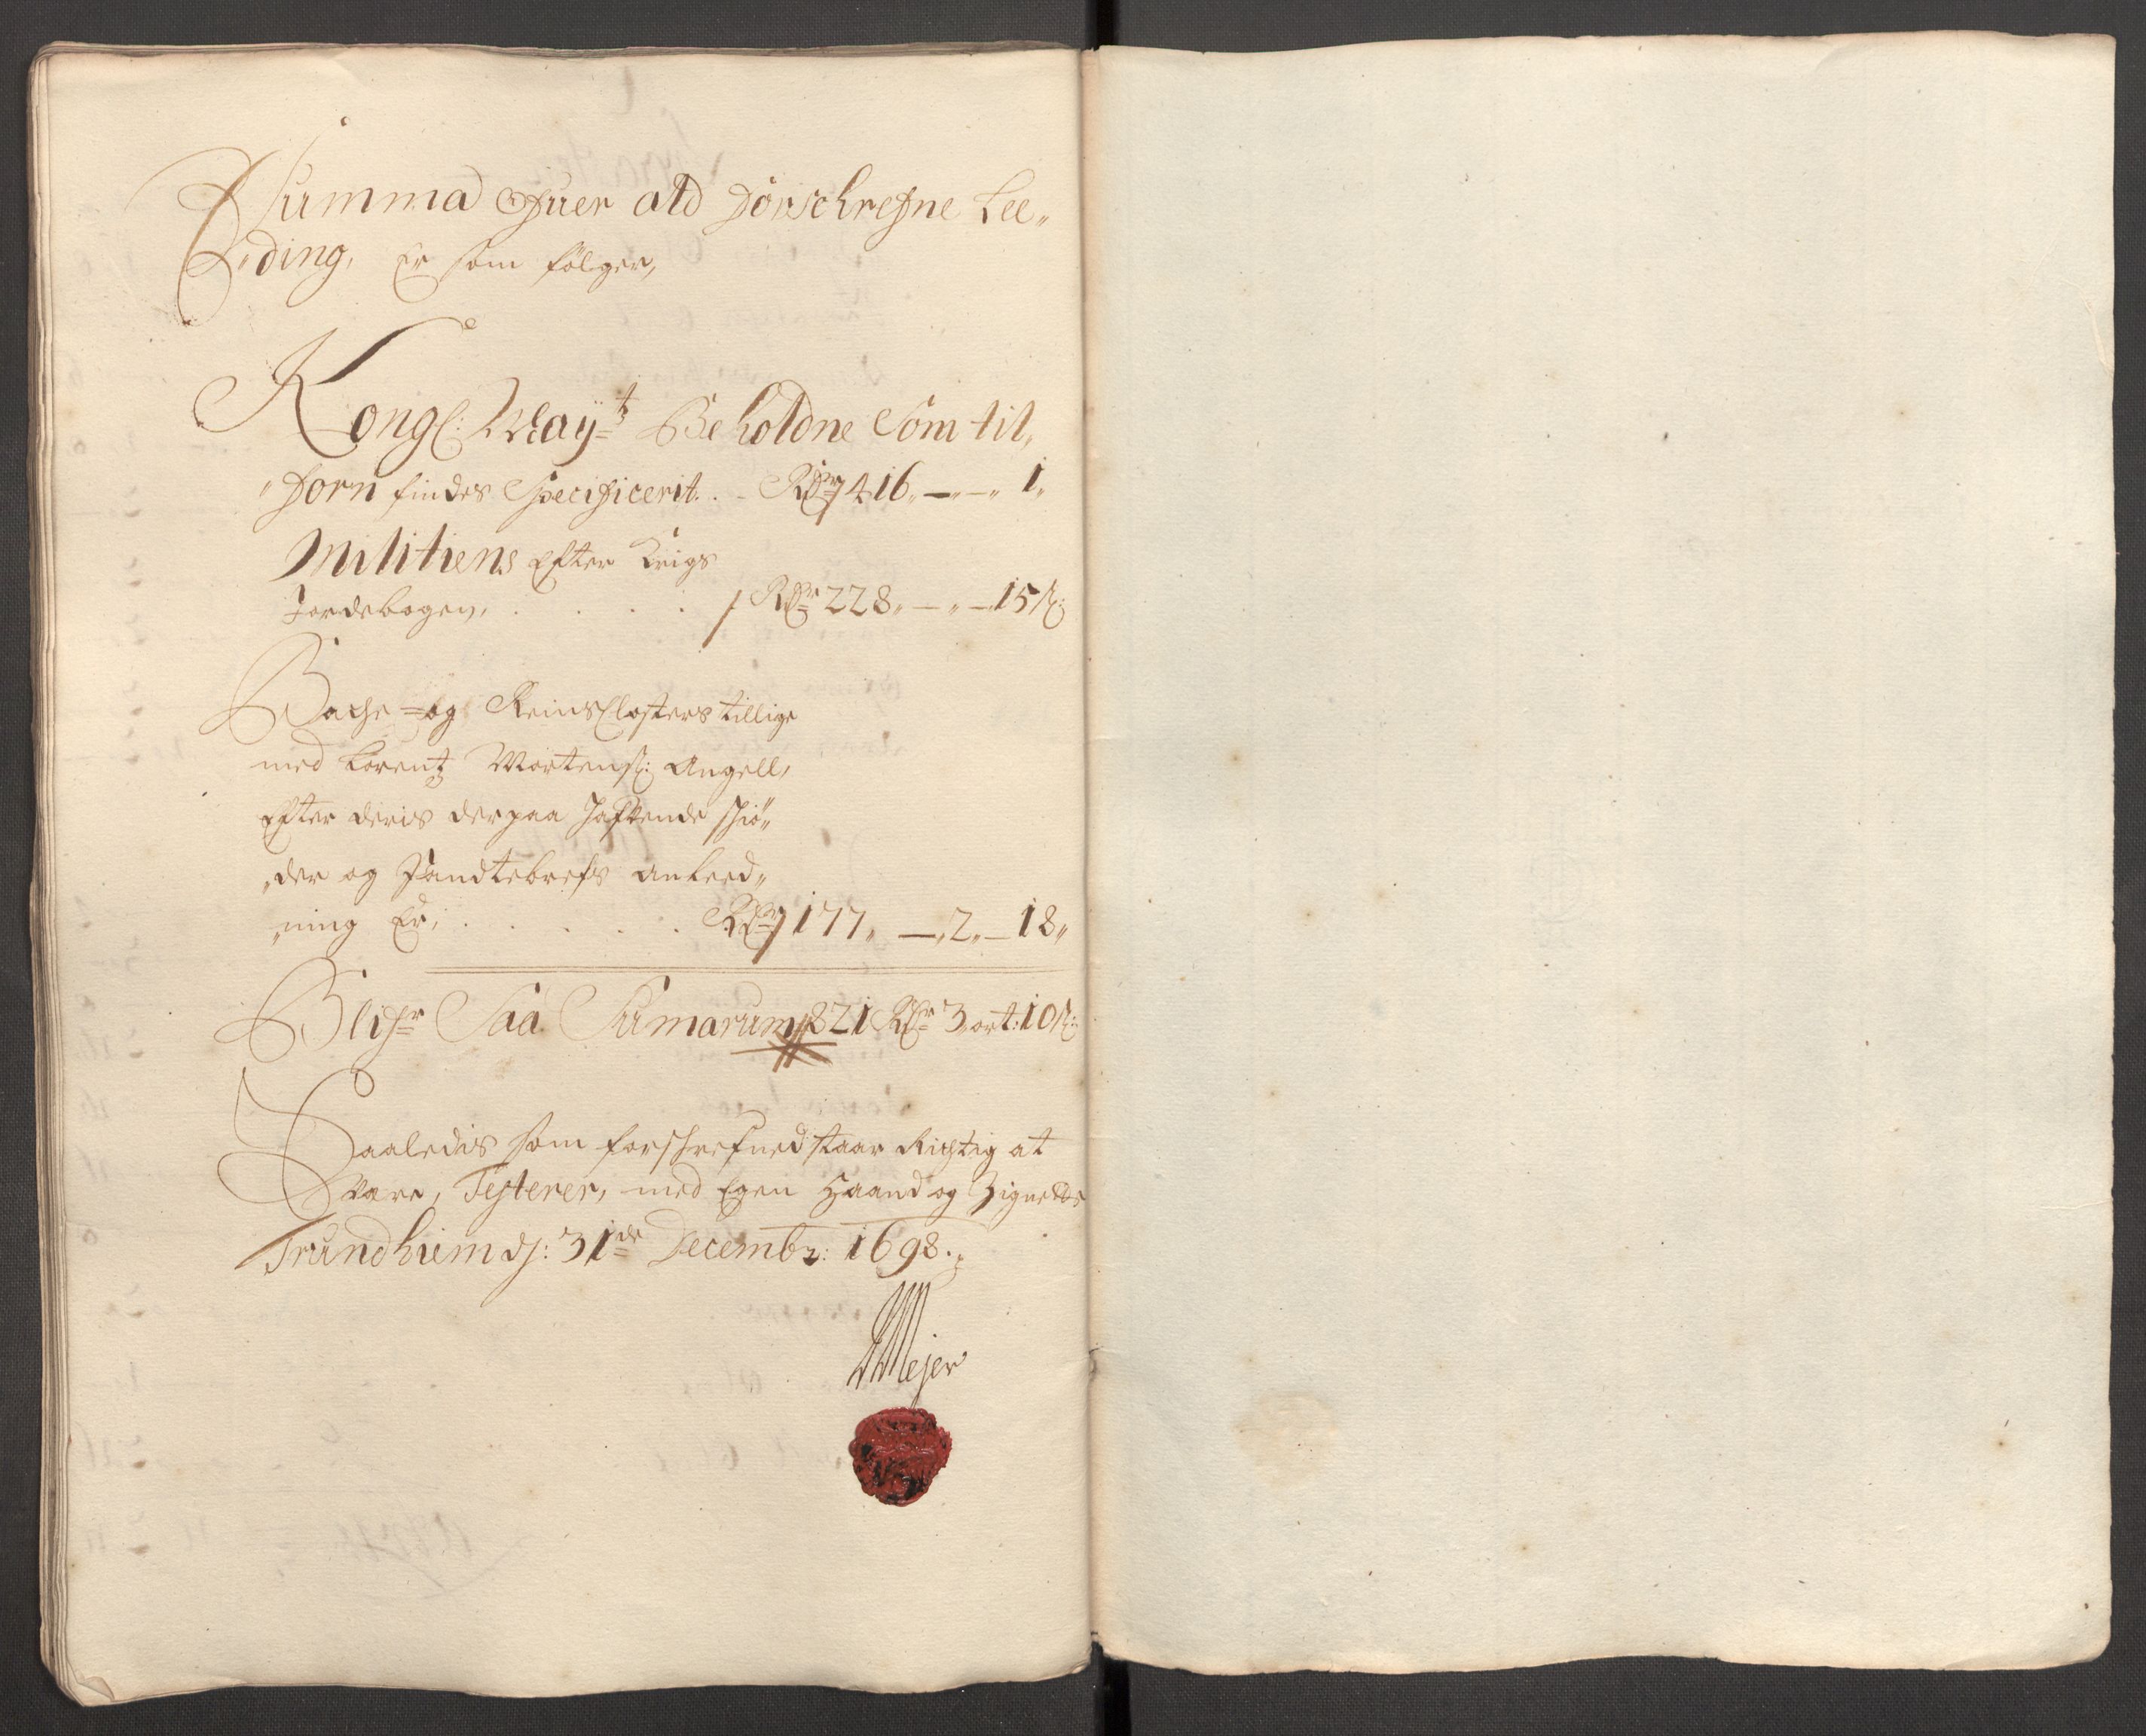 Summa Ofuer ald Forschrefne Lee„
„ding, Er som følger,
Kongl: Mayts Beholdne Som til,
„forn findes Specificerit. - Rdr 416„ — „ — „ 1„
Militiens Efter Krigs
Jordebogen, . . . . Rdr 228„ — „ — 15 s:
Bache = og Reins Closters tillige
med Lorentz Mortens: Angell,
Efter deris derpaa hafvende schiö„
„der og Pandtebrefs anleed„
„ning Er, . . . . . Rdr 177„ — „ 2„ — 18„
Blifr Saa Sumarum 821 Rdr 3 ort: 10 s:
Saaledis som forschrefned staar Richtig at
Være, Testerer, med Egen Haand og Zignette
Trundhiem dj: 31de Decembr: 1698.
Mejer